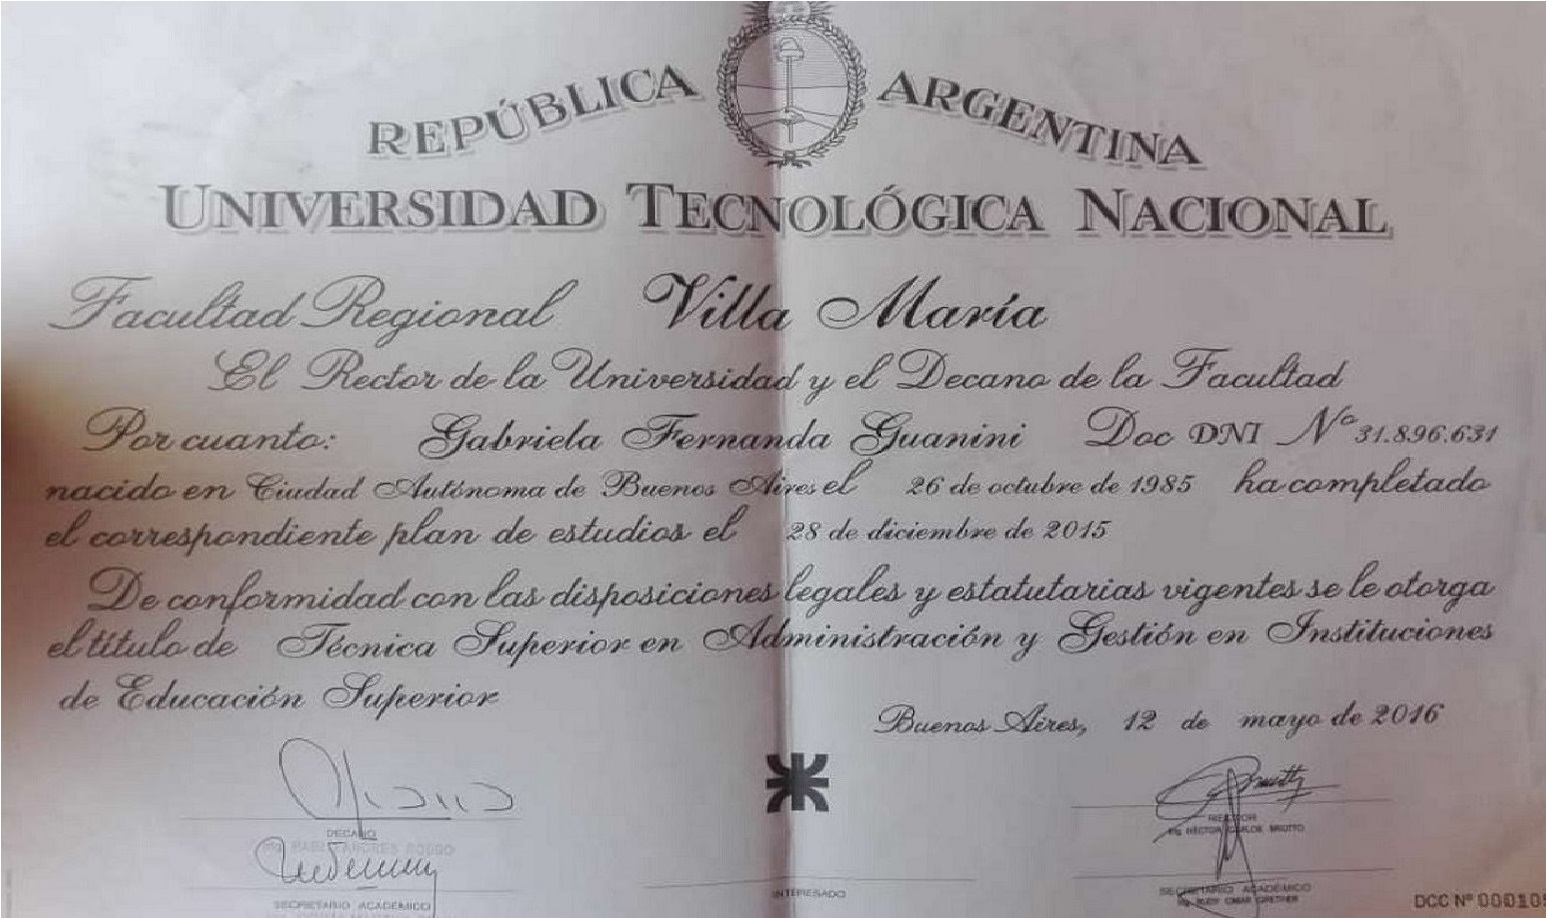 REPÚBLICA ARGENTINA
UNIVERSIDAD TECNOLÓGICA NACIONAL
Facultad Regional Villa María
El Rector de la Universidad y el Decano de la Facultad
Por cuanto: Gabriela Fernanda Guanini Doc DNI Nº 31.896.631
nacido en Ciudad Autónoma de Buenos Aires el 26 de octubre de 1985 ha completado
el correspondiente plan de estudios el 28 de diciembre de 2015
De conformidad con las disposiciones legales y estatutarias vigentes se le otorga
el título de Técnica Superior en Administración y Gestión en Instituciones
de Educación Superior
Buenos Aires, 12 de mayo de 2016
DECANO
RECTOR
Ing. HÉCTOR CARLOS BROTTO
SECRETARIO ACADÉMICO
INTERESADO
SECRETARIO ACADÉMICO
DCC Nº 000105